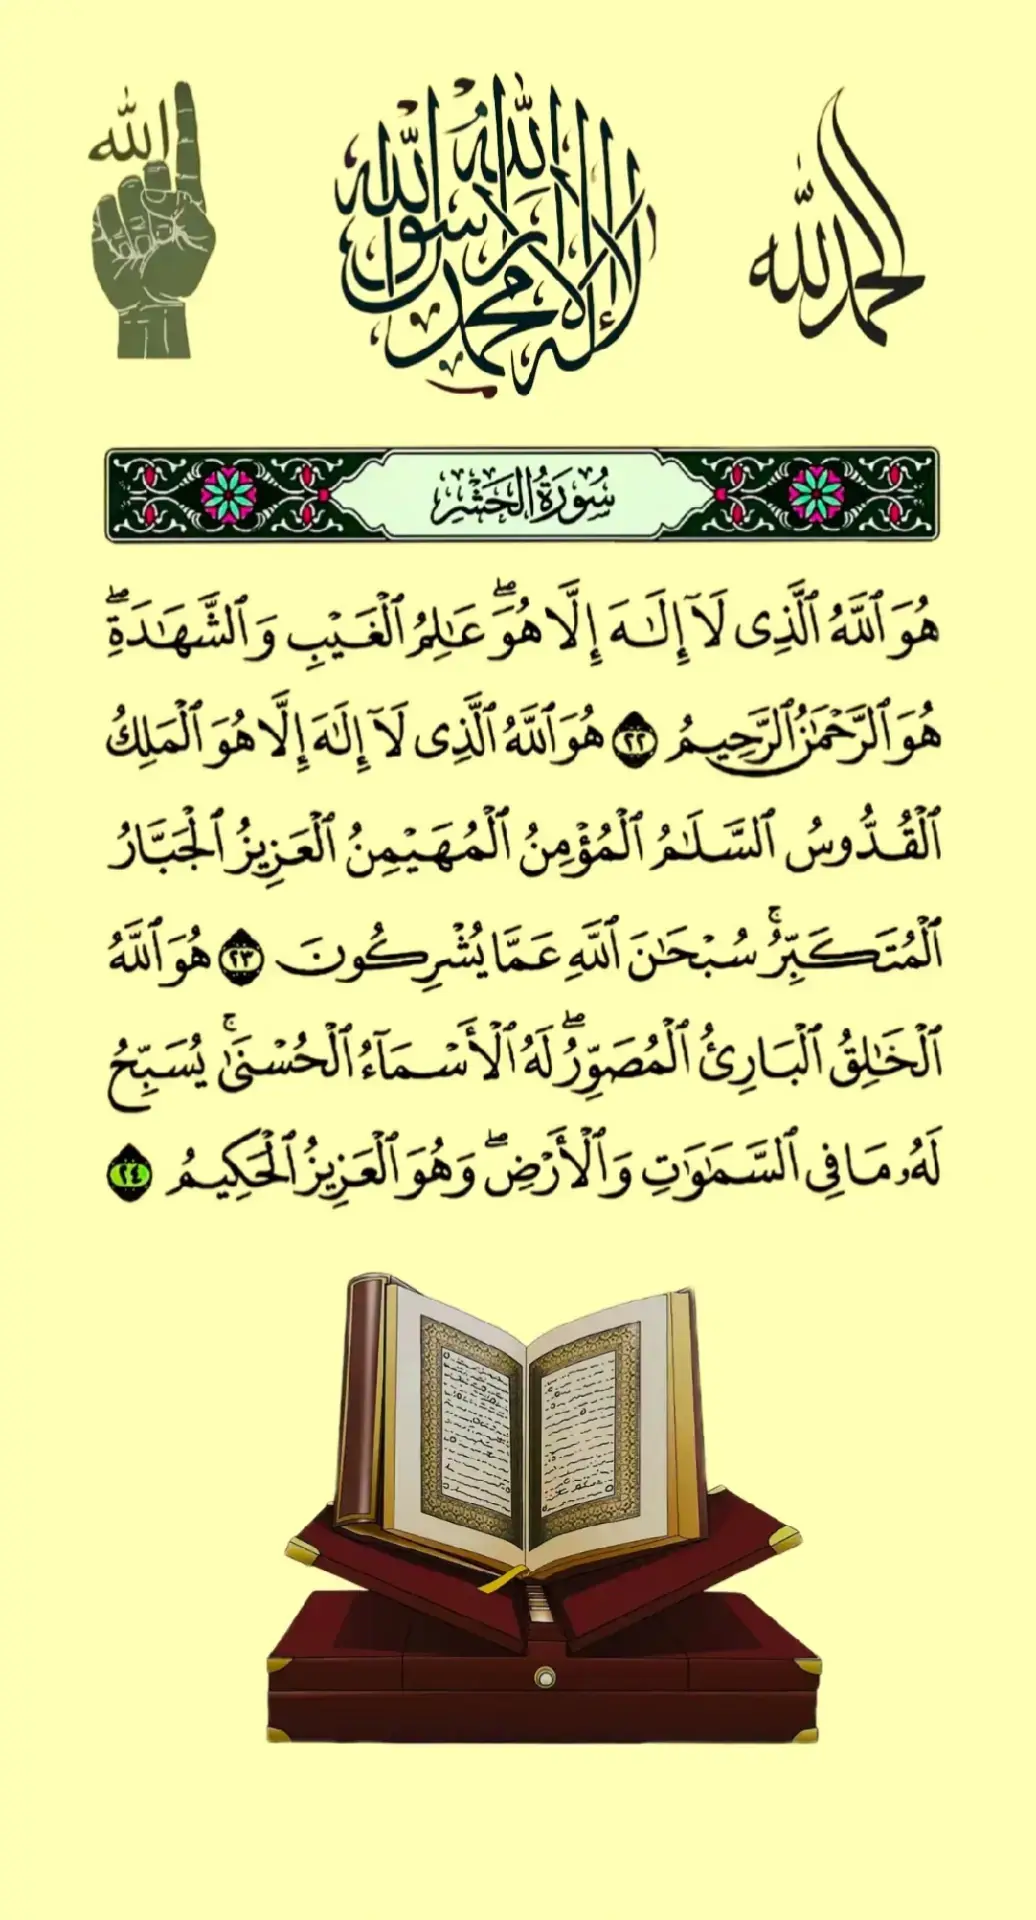 الحمد لله
لا إله إلا الله محمد رسول الله
الله
سُورَةُ الحَشْرِ
هُوَ ٱللَّهُ ٱلَّذِى لَآ إِلَـٰهَ إِلَّا هُوَۖ عَـٰلِمُ ٱلْغَيْبِ وَٱلشَّهَـٰدَةِۖ
هُوَ ٱلرَّحْمَـٰنُ ٱلرَّحِيمُ ٢٢ هُوَ ٱللَّهُ ٱلَّذِى لَآ إِلَـٰهَ إِلَّا هُوَ ٱلْمَلِكُ
ٱلْقُدُّوسُ ٱلسَّلَـٰمُ ٱلْمُؤْمِنُ ٱلْمُهَيْمِنُ ٱلْعَزِيزُ ٱلْجَبَّارُ
ٱلْمُتَكَبِّرُۚ سُبْحَـٰنَ ٱللَّهِ عَمَّا يُشْرِكُونَ ٢٣ هُوَ ٱللَّهُ
ٱلْخَـٰلِقُ ٱلْبَارِئُ ٱلْمُصَوِّرُۖ لَهُ ٱلْأَسْمَآءُ ٱلْحُسْنَىٰۚ يُسَبِّحُ
لَهُۥ مَا فِى ٱلسَّمَـٰوَٰتِ وَٱلْأَرْضِۖ وَهُوَ ٱلْعَزِيزُ ٱلْحَكِيمُ ٢٤